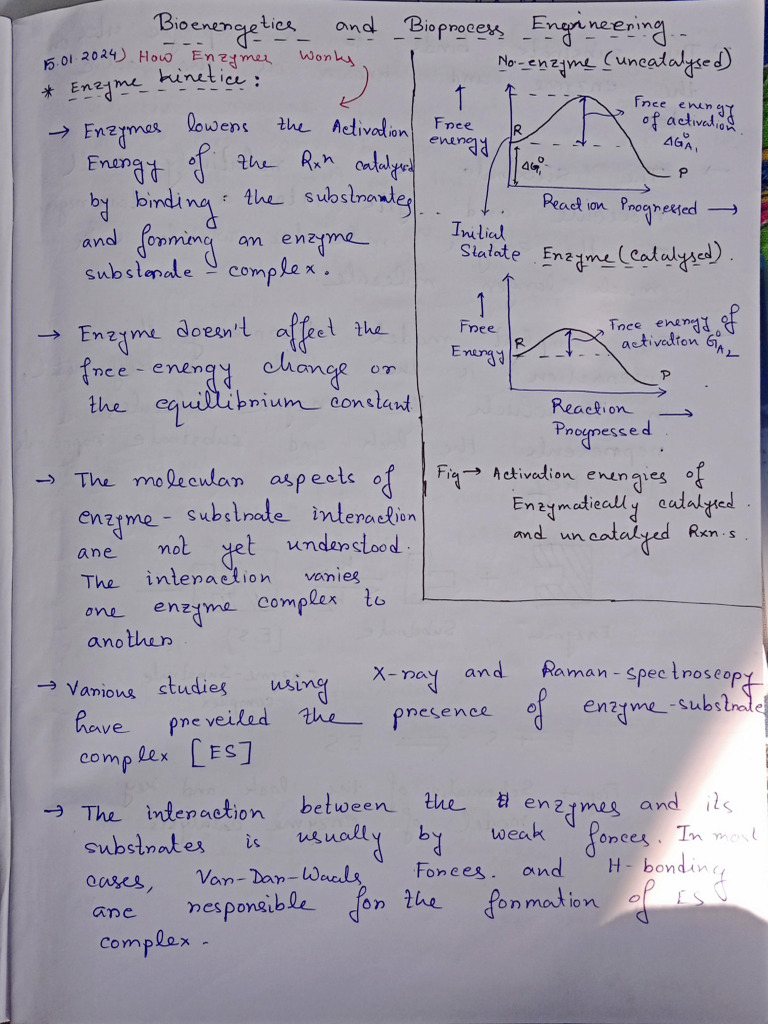 Bioenergetics and Bioprocess Engineering
15.01.2024) How Enzymes Works
* Enzyme kinetics :
→ Enzymes lowers the Activation
Energy of the Rxn catalysed
by binding the substrates
and forming an enzyme
substrate - complex.
→ Enzyme doesn't affect the
free-energy change or
the equillibrium constant
→ The molecular aspects of
enzyme - substrate interaction
are not yet understood.
The interaction varies
one enzyme complex to
another
No-enzyme (uncatalysed)
Free
energy
R
ΔG°
Free energy
of activation
ΔG°A1
P
Reaction Progressed →
Initial
Statate
Enzyme (Catalysed).
Free
Energy
R
Free energy of
activation G°A2
P
Reaction →
Progressed
Fig → Activation energies of
Enzymatically catalysed
and uncatalyed Rxn.s.
→ Various studies using X-ray and Raman-spectroscopy
have preveiled the presence of enzyme-substrate
complex [ES]
→ The interaction between the enzymes and its
substrates is usually by weak forces. In most
cases, Van-Dan-Waals Forces. and H-bonding
are responsible for the formation of ES
complex.